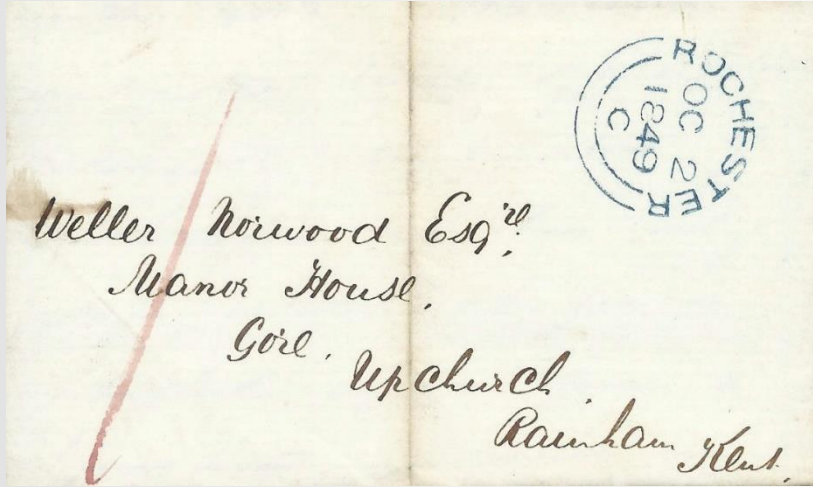 ROCHESTER
OC 2
1849
C
Weller Norwood Esqre.
Manor House.
Gore.
Upchurch
Rainham Kent.